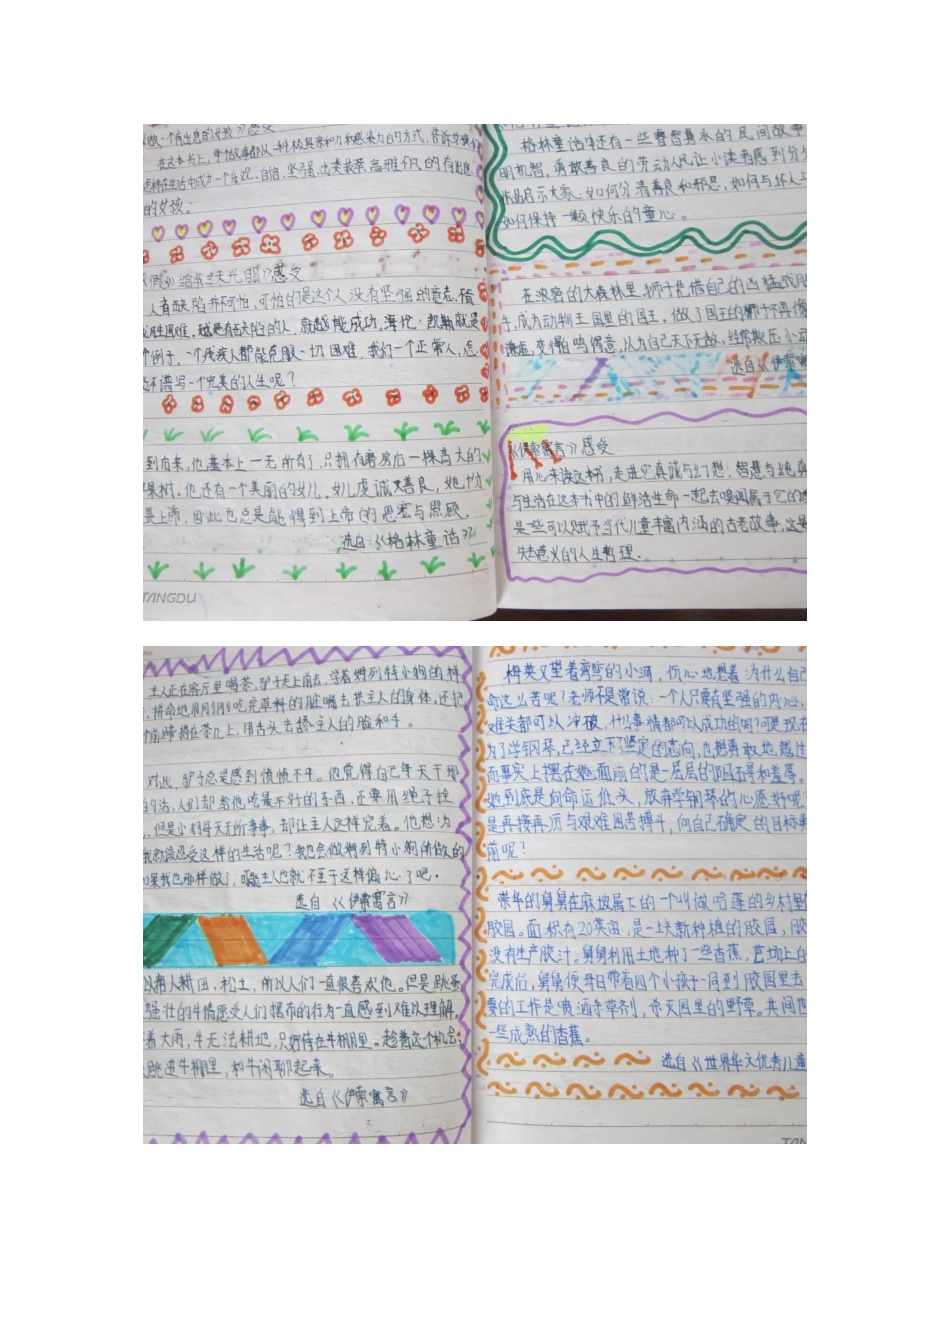 做一个有出息的女孩》感受
在这本书上，
的女孩。
《假如给我三天光明》感受
人有缺陷并不可怕，可怕的是这个人没有坚强的意志，
战胜困难。越是有缺陷的人，就越能成功。海伦·凯勒就是
个例子，一个残疾人都能克服一切困难，我们一个正常人，怎
能不谱写一个完美的人生呢？
到后来，他基本上一无所有了，只拥有磨房后一棵高大的
果树。他还有一个美丽的女儿。女儿虔诚又善良，她
上帝，因此也总是能得到上帝的恩宠与照顾。
选自：《格林童话》
TANGDU
格林童话中还有一些睿智隽永的民间故事
明机智，勇敢善良的劳动人民让小读者感到分外
作品启示大家，如何分清善良和邪恶，如何与坏人
如何保持一颗快乐的童心。
在浓密的大森林里，狮子凭借自己的凶猛战胜
成为动物王国里的国王。做了国王的狮子不再像
谦虚，变得自鸣得意，以为自己天下无敌，经常欺压小动
选自《伊索寓
《伊索寓言》感受
用心来读这本书，走进它真诚与幻想，智慧与纯真
与生活在这本书中的鲜活生命一起去嗅闻属于它的
是一些可以赋予当代儿童丰富内涵的古老故事，这是
失意义的人生哲理。
主人正在客厅里喝茶，驴子走上前去，学着姆列特小狗的样
，拼命地用刚刚吃完草料的脏嘴去拱主人的身体，还把
前蹄搭在茶几上，用舌头去舔主人的脸和手。
对此，驴子总是感到愤愤不平。他觉得自己每天干那
的活，人们却给他吃最不好的东西，还要用绳子拴
，但是小狗每天无所事事，却让主人这样宠着。他想：为
我就该忍受这样的生活呢？我也会做姆列特小狗所做的
如果我也那样做了，可能主人也就不至于这样偏心了吧。
选自《伊索寓言》
以帮人耕田，松土，所以人们一直很喜欢他。但是跳蚤
强壮的牛情愿受人们摆布的行为一直感到难以理解。
着大雨，牛无法耕地，只好待在牛棚里。趁着这个机会，
跳进牛棚里，和牛闲聊起来。
选自《伊索寓言》
梅英又望着弯弯的小河，伤心地想着：为什么自己
命这么苦呢？老师不是常说：一个人只要有坚强的内心，
难关都可以冲破，什么事情都可以成功的吗？可是现在
为了学钢琴，已经立下坚定的志向，也想勇敢地越过
而事实上摆在她面前的是一层层的阻碍和羞辱。
她到底是向命运低头，放弃学钢琴的心愿好呢？
是再接再厉与艰难困苦搏斗，向自己确定的目标勇
前呢？
荣华的舅舅在麻坡属下的一个叫做哈莲的乡村里
胶园。面积有20英亩，是一块新种植的胶园，胶
没有生产胶汁。舅舅利用土地种了一些香蕉，芭场上的
完成后，舅舅便每日带着四个小孩子一同到胶园里去
要的工作是喷洒杀草剂，杀灭园里的野草。其间也
一些成熟的香蕉。
选自《世界华文优秀儿童
TAN